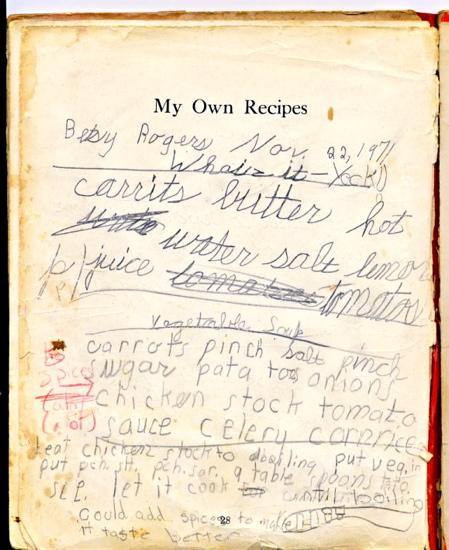 My Own Recipes
Betsy Rogers Nov. 22, 1971
What is it -
carrits butter hot
water salt lemon
juice tomatos
Vegetable Soup
carrots pinch salt pinch
sugar patatoos onions
chicken stock tomato
sauce celery
heat chicken stock to aboiling put veg. in
put pch. slt. pch. sgr. 9 table spoons
let it cook until boiling
Could add spices to make
it taste better
28